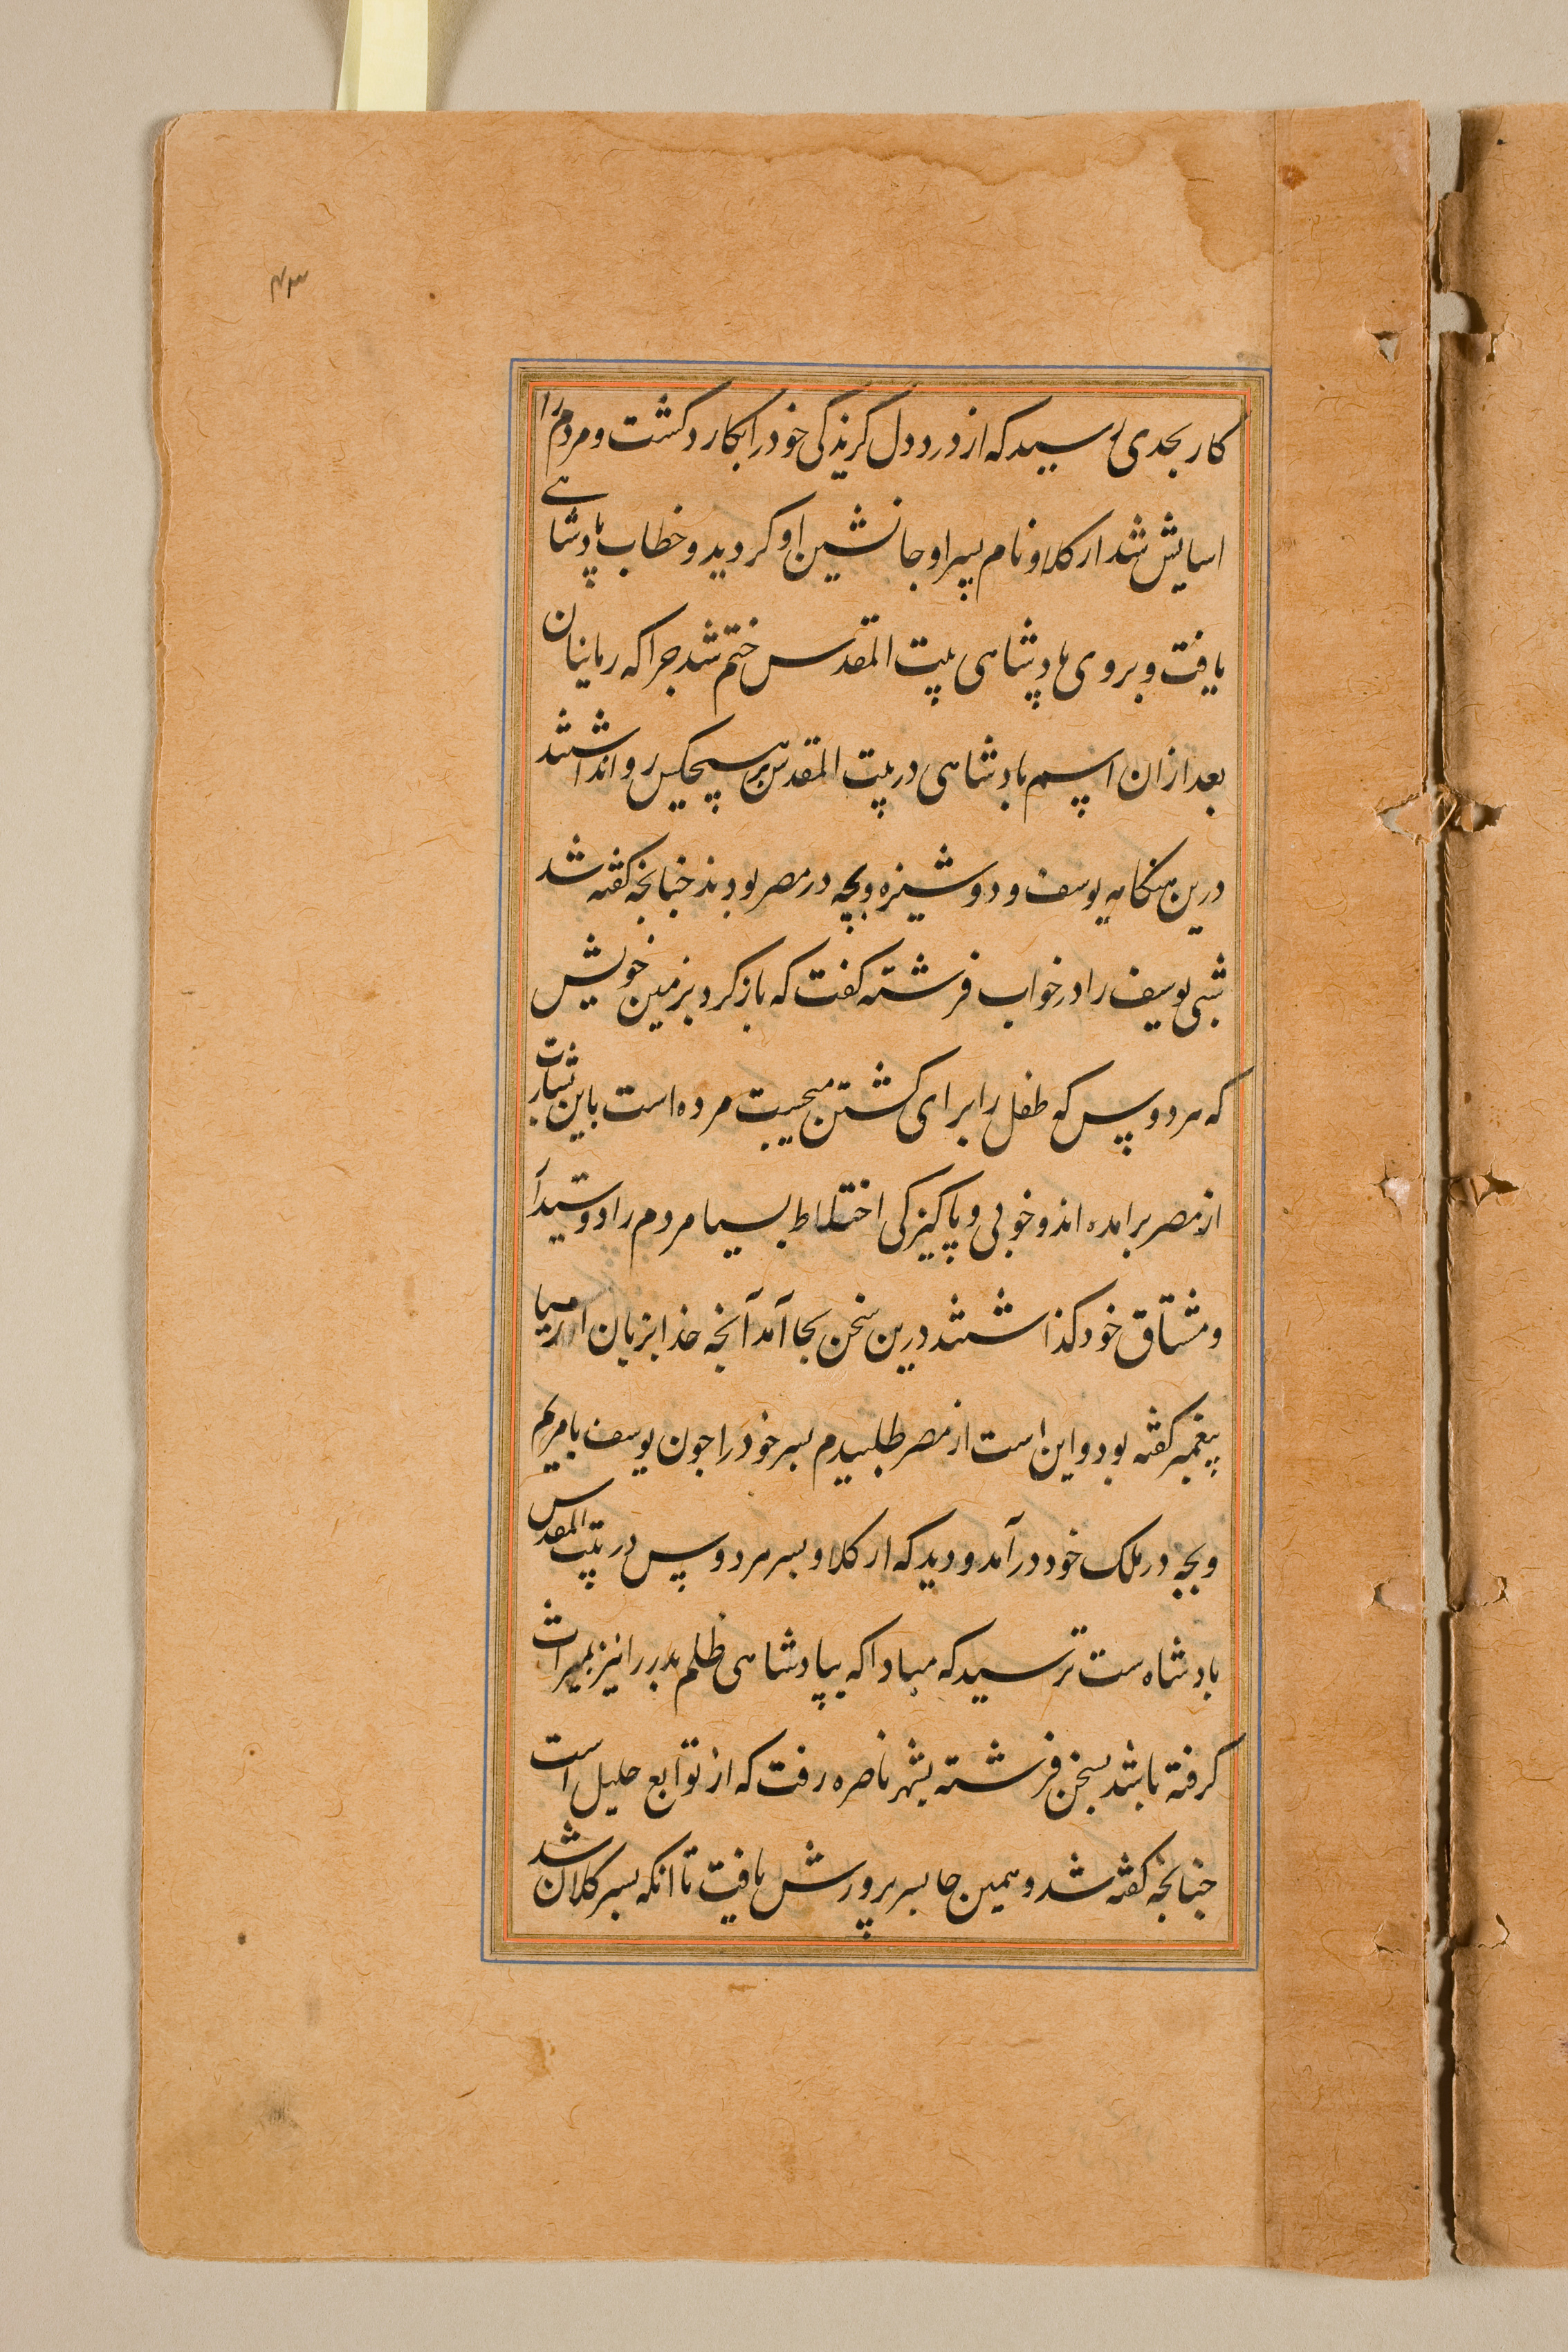 ۴۳
کار بحدی رسید که از درد دل کریذکی خود را بکار دکشت و مردم را
اسایش شد ارکلاو نام پسر او جانشین او کردید و خطاب پادشاهی
یافت و بروی پادشاهی بیت المقدس ختم شد جرا که رمانیان
بعد ازان اسم پادشاهی در بیت المقدس بر هیچکس روا نداشتند
درین هنکامه یوسف و دوشیزه و بچه در مصر بودند جنانجه کفته شد
شبی یوسف را در خواب فرشته کفت که باز کرد بزمین خویش
که هردوس که طفل را برای کشتن میجست مرده است باین بشارت
از مصر برامده اند و خوبی و پاکیزکی اختلاط بسیا مردم را دوستدار
و مشتاق خود کذاشتند درین سخن بجا آمد آنجه خدا بزبان ارمیا
پیغمبر کفته بود و این است از مصر طلبیدم پسر خود را جون یوسف با مریم
و بچه در ملک خود درآمد و دید که ارکلاو پسر هردوس در بیت المقدس
پادشاه ست ترسید که مبادا که بپادشاهی ظلم پدر را نیز بمیراث
کرفته باشد بسخن فرشته بشهر ناصره رفت که از توابع جلیل است
جنانجه کفته شد و همین جا پسر پرورش یافت تا انکه پسر کلان شد